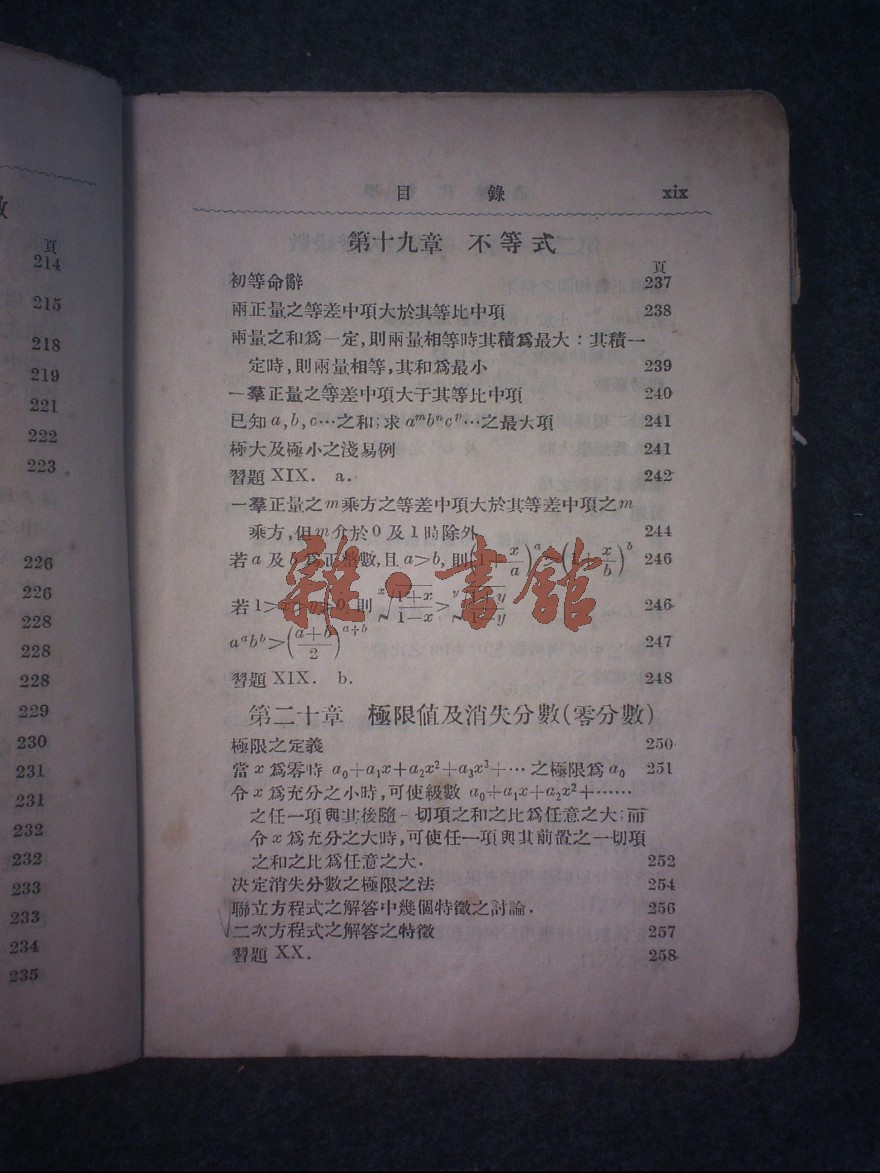 數
頁
214
215
218
219
221
222
223
226
226
228
228
228
229
230
231
231
232
232
233
233
234
235
目 錄 xix
第十九章 不等式
頁
初等命辭 237
兩正量之等差中項大於其等比中項 238
兩量之和爲一定,則兩量相等時其積爲最大:其積一
定時,則兩量相等,其和爲最小 239
一羣正量之等差中項大于其等比中項 240
已知a,b,c…之和;求 aᵐbⁿcᵖ…之最大項 241
極大及極小之淺易例 241
習題 XIX. a. 242
一羣正量之m乘方之等差中項大於其等差中項之m
乘方,但m介於0及1時除外 244
若a及b爲正整數,且a>b, 則(1+x/a)ᵃ>(1+x/b)ᵇ 246
若1>x>y>0, 則 ˣ√((1+x)/(1−x))>ʸ√((1+y)/(1−y)) 246
aᵃbᵇ>((a+b)/2)ᵃ⁺ᵇ 247
習題 XIX. b. 248
第二十章 極限値及消失分數(零分數)
極限之定義 250
當x爲零時 a₀+a₁x+a₂x²+a₃x³+… 之極限爲a₀ 251
令x爲充分之小時,可使級數 a₀+a₁x+a₂x²+……
之任一項與其後隨一切項之和之比爲任意之大;而
令x爲充分之大時,可使任一項與其前置之一切項
之和之比爲任意之大. 252
决定消失分數之極限之法 254
聯立方程式之解答中幾個特徵之討論. 256
二次方程式之解答之特徵 257
習題 XX. 258
雜·書館